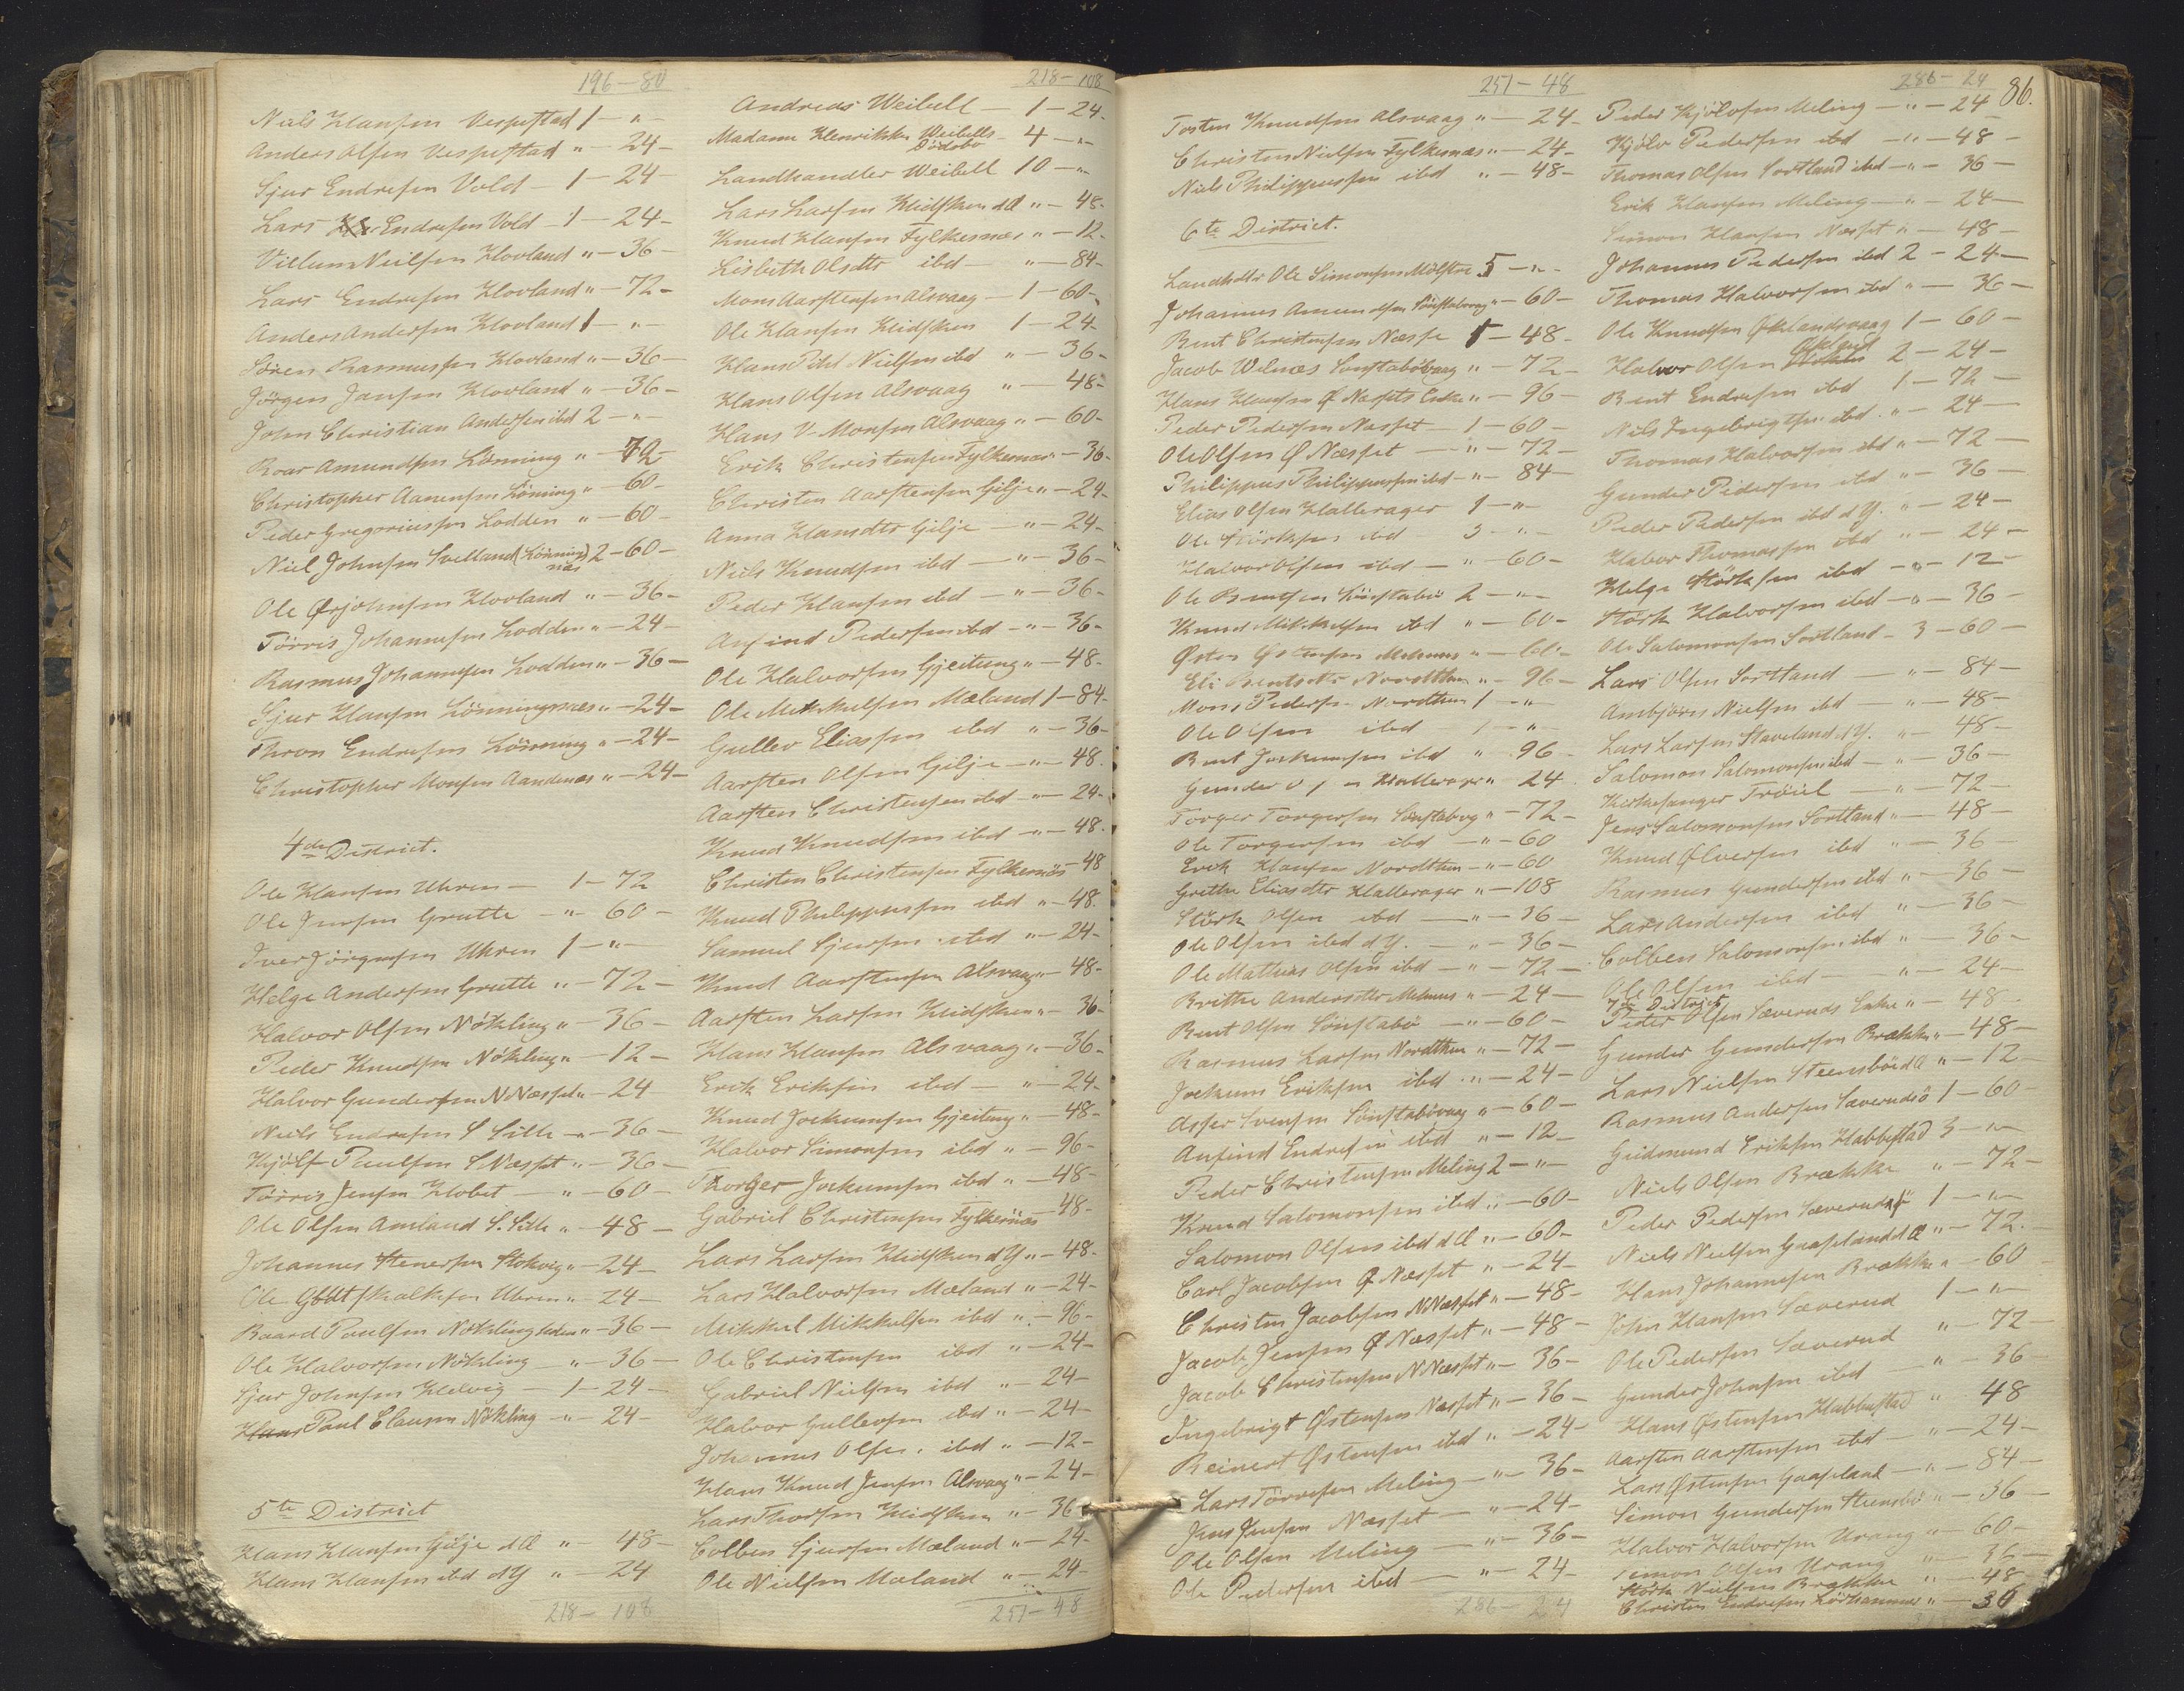 196 - 80
Niels Hansen Vespestad 1 - " -
Anders Olsen Vespestad " - 24 -
Sjur Endresen Vold - 1 - 24 -
Lars Endresen Vold - 1 - 24 -
Villum Nielsen Hovland " - 36 -
Lars Endresen Hovland " - 72 -
Anders Andersen Hovland 1 - " -
Sören Rasmussen Hovland " - 36 -
Jörgen Jansen Hovland " - 36 -
John Christian Andersen ibd 2 - " -
Roar Amundsen Lönning " - 72 -
Christopher Aanensen Lönning " - 60 -
Peder Gregoriussen Lodden " - 60 -
Niel Johnsen Svelland (Lönningnæs) 2 - 60 -
Ole Ørjohnsen Hovland " - 36 -
Törris Johannesen Lodden " - 24 -
Rasmus Johannesen Lodden " - 36 -
Sjur Hansen Lönningnæs " - 24 -
Thron Endresen Lönning " - 24 -
Christopher Monsen Aandenæs " - 24 -
4de District.
Ole Hansen Uhren - 1 - 72
Ole Jensen Grutle - " - 60 -
Iver Jörgensen Uhren 1 - " -
Helge Andersen Grutle " - 72 -
Halvor Olsen Nökling " - 36 -
Peder Knudsen Nökling " - 12 -
Halvor Gundersen N Næsset " - 24
Niels Endresen S Sille - " - 36 -
Kjölf Paulsen S Næsset " - 36 -
Törris Jensen Hobet - " - 60 -
Ole Olsen Amland S. Sille " - 48 -
Johannes Stenersen Stokvig " - 24 -
Ole Godtskalksen Uhren " - 24 -
Baard Paulsen Nöklingholm " - 36 -
Ole Halvorsen Nökling - " - 36 -
Sjur Johnsen Helvig - 1 - 24 -
Hans Paul Clausen Nökling - " - 24 -
5te District
Hans Hansen Gilje d Æ " - 48 -
Hans Hansen ibd d Y " - 24
218 - 108
218 - 108
Andreas Weibell - 1 - 24 -
Madame Henrikke Weibells Dödsbo - 4 - " -
Landhandler Weibell 10 - " -
Lars Larsen Hidsken d Æ " - 48 -
Knud Hansen Fylkesnæs " - 12 -
Lisbeth Olsdtr ibd " - 84 -
Mons Aarstensen Alsvaag - 1 - 60 -
Ole Hansen Hidsken 1 - 24 -
Hans Pihl Nielsen ibd " - 36 -
Hans Olsen Alsvaag " - 48 -
Hans V. Monsen Alsvaag " - 60 -
Erik Christensen Fylkesnæs " - 36 -
Christen Aarstensen Gilje " - 24 -
Anna Hansdtr Gilje - " - 24 -
Niels Knudsen ibd - " - 36 -
Peder Hansen ibd - " - 36 -
Anfind Pedersen ibd - " - 36 -
Ole Halvorsen Gjeitung " - 48 -
Ole Mikkelsen Mæland 1 - 84 -
Gullev Eliassen ibd " - 36 -
Aarsten Olsen Gilje - " - 48 -
Aarsten Christensen ibd - " - 24 -
Knud Knudsen ibd - " - 48 -
Christen Christensen Fylkesnæs - 48
Knud Philippussen ibd " - 48 -
Samuel Sjursen ibd " - 24 -
Knud Aarstensen Alsvaag " - 48 -
Aarsten Larsen Hidsken " - 36 -
Hans Hansen Alsvaag " - 36 -
Erik Eriksen ibd - " - 24 -
Knud Jockumsen Gjeitung " - 48 -
Halvor Simonsen ibd " - 96 -
Thorger Jockumsen ibd " - 48 -
Gabriel Christensen Fylkesnæs - 48 -
Lars Larsen Hidsken d Y " - 48 -
Lars Halvorsen Mæland " - 24 -
Mikkel Mikkelsen ibd " - 96 -
Ole Christensen ibd " - 24 -
Gabriel Nielsen ibd " - 24 -
Halvor Gullevsen ibd " - 24 -
Johannes Olsen ibd " - 12 -
Hans Knud Jensen Alsvaag " - 24 -
Lars Thorsen Hidsken " - 36
Colben Sjursen Mæland " - 24 -
Ole Nielsen Mæland " - 24 -
251 - 48
251 - 48
Tosten Knudsen Alsvaag " - 24 -
Christen Nielsen Fylkesnæs " - 24 -
Niels Philippussen ibd " - 48 -
6te District.
Landhdlr Ole Simonsen Mölstre 5 - " -
Johannes Amundsen Sönstabövaag " - 60 -
Bent Christensen Næsse 1 - 48 -
Jacob Wilnæs Sönstabövaag " - 72 -
Hans Hansen Ø Næssets Enke " - 96 -
Peder Pedersen Næsset - 1 - 60 -
Ole Olsen Ø Næsset - " - 72 -
Philippus Philippussen ibd - " - 84 -
Elias Olsen Hallerager 1 - " -
Ole Störksen ibd 3 - " -
Halvor Olsen ibd - " - 60 -
Ole Bentsen Sönstabö 2 - " -
Knud Mikkelsen ibd " - 60 -
Østen Østensen Melsnes " - 60 -
Eli Bentsdtr Nordthun " - 96 -
Mons Pedersen Nordthun 1 - " -
Ole Olsen ibd 1 - " -
Bent Jockumsen ibd " 96 -
Gunder Hallerager " 24
Torger Torgersen Sönstabövg " - 72 -
Ole Torgersen ibd - " - 60
Erik Hansen Nordthun - " - 60
Grethe Eliasdtr Hallerager " - 108
Störk Olsen ibd - " - 36 -
Ole Olsen ibd d Y. - " - 36 -
Ole Mathias Olsen ibd - " - 72 -
Brithe Andersdtr Melsnes " - 24 -
Bent Olsen Sönstabö - " - 60 -
Rasmus Larsen Nordthun " - 72 -
Jockum Eriksen ibd " - 24 -
Asser Svensen Sönstabövaag " - 60 -
Anfind Endresen ibd " - 12 -
Peder Christensen Meling 2 - " -
Knud Salomonsen ibd " - 60 -
Salomon Olsen ibd d Æ " - 60 -
Carl Jacobsen Ø Næsset " - 24 -
Christen Jacobsen N Næsset " - 48 -
Jacob Jensen Ø Næsset " - 48 -
Jacob Christensen N Næsset " - 36 -
Ingebrigt Østensen Næsset " - 36 -
Reinert Østensen ibd " - 24 -
Lars Törresen Meling - " - 36 -
Jens Jensen Næsset - " - 24 -
Ole Olsen Meling - " - 36 -
Ole Pedersen ibd - " - 24 -
286 - 24
286 - 24
86.
Peder Kjölvsen Meling - " - 24
Kjölv Pedersen ibd - " - 48 -
Thomas Olsen Sortland ibd - " - 36 -
Erik Hansen Meling - " - 24 -
Simon Hansen Næsset " - 48 -
Johannes Pedersen ibd 2 - 24 -
Thomas Halvorsen ibd " - 36 -
Ole Knudsen Øklandsvaag 1 - 60 -
Halvor Olsen Økland 2 - 24 -
Bent Endresen ibd 1 - 72 -
Nils Ingebrigtsen ibd " - 24 -
Thomas Halvorsen ibd " - 72 -
Gunder Pedersen ibd " - 36 -
Peder Pedersen ibd d Y. " - 24 -
Halvor Thomassen ibd " - 24 -
Helge Störksen ibd - " - 12 -
Störk Halvorsen ibd - " - 36 -
Ole Salomonsen Sortland - 3 - 60 -
Lars Olsen Sortland - " - 84 -
Ambjörn Nielsen ibd - " - 48 -
Lars Larsen Staveland d Y. " - 48 -
Salomon Salomonsen ibd - " - 36 -
Kirkesanger Tröiel - " - 72 -
Jens Salomonsen Sortland " - 48 -
Knud Ølversen ibd " - 36 -
Rasmus Gundersen ibd " - 36 -
Lars Andersen ibd " - 36 -
Colben Salomonsen ibd " - 36 -
Ole Olsen ibd - " - 24 -
7de District
Peder Olsen Sæveruds Enke " - 48 -
Gunder Gundersen Brække " - 48 -
Lars Nielsen Steensbö d Æ " - 12
Rasmus Andersen Sæverudsö 1 - 60 -
Gudmund Eriksen Habbestad 3 - " -
Niels Olsen Brække " - 72 -
Peder Pedersen Sæverudsö 1 - " -
Niels Nielsen Gaasland d Æ " - 72 -
Hans Johannesen Brække " - 60
John Hansen Sæverud 1 - " -
Ole Pedersen Sæverud " - 72 -
Gunder Johnsen ibd " - 36 -
Hans Østensen Habbestad " 48
Aarsten Aarstensen ibd - " - 24 -
Lars Østensen Gaasland - " - 84 -
Simon Gundersen Steensbö " - 36 -
Halvor Halvorsen Urang " - 60 -
Simon Olsen Urang " - 36 -
Störk Nielsen Brække " - 48
Christen Endresen Lörhammer " - 36